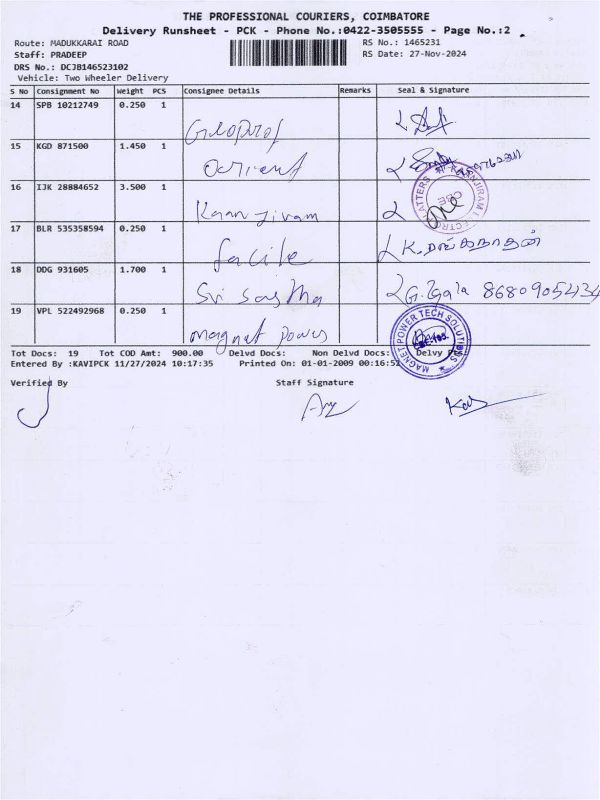 THE PROFESSIONAL COURIERS, COIMBATORE
Delivery Runsheet - PCK - Phone No.:0422-3505555 - Page No.:2
Route: MADUKKARAI ROAD RS No.: 1465231
Staff: PRADEEP RS Date: 27-Nov-2024
DRS No.: DCJB146523102
Vehicle: Two Wheeler Delivery
S No Consignment No Weight PCS Consignee Details Remarks Seal & Signature
14 SPB 10212749 0.250 1
15 KGD 871500 1.450 1
Orient
16 IJK 28884652 3.500 1
Kaanjivam
17 BLR 535358594 0.250 1
facile K. ரங்கநாதன்
18 DDG 931605 1.700 1
Sri Sastha 8680905434
19 VPL 522492968 0.250 1
MAGNET POWER TECH SOLUTIONS
magnet power
Tot Docs: 19 Tot COD Amt: 900.00 Delvd Docs: Non Delvd Docs: Delvy
Entered By :KAVIPCK 11/27/2024 10:17:35 Printed On: 01-01-2009 00:16:52
Verified By Staff Signature